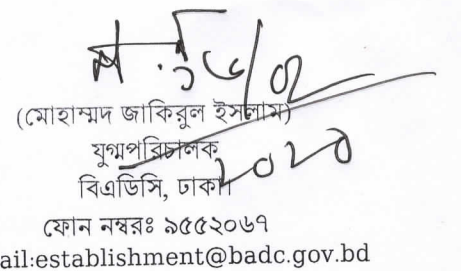 (মোহাম্মদ জাকিরুল ইসলাম)
যুগ্মপরিচালক
বিএডিসি, ঢাকা।
ফোন নম্বরঃ ৯৫৫২০৬৭
ail:establishment@badc.gov.bd